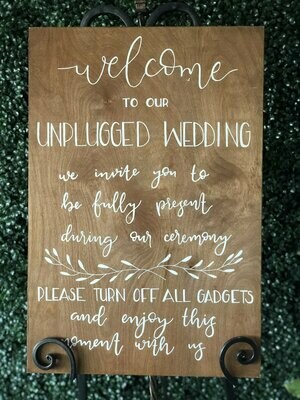 welcome
TO OUR
UNPLUGGED WEDDING
we invite you to
be fully present
during our ceremony
PLEASE TURN OFF ALL GADGETS
and enjoy this
moment with us